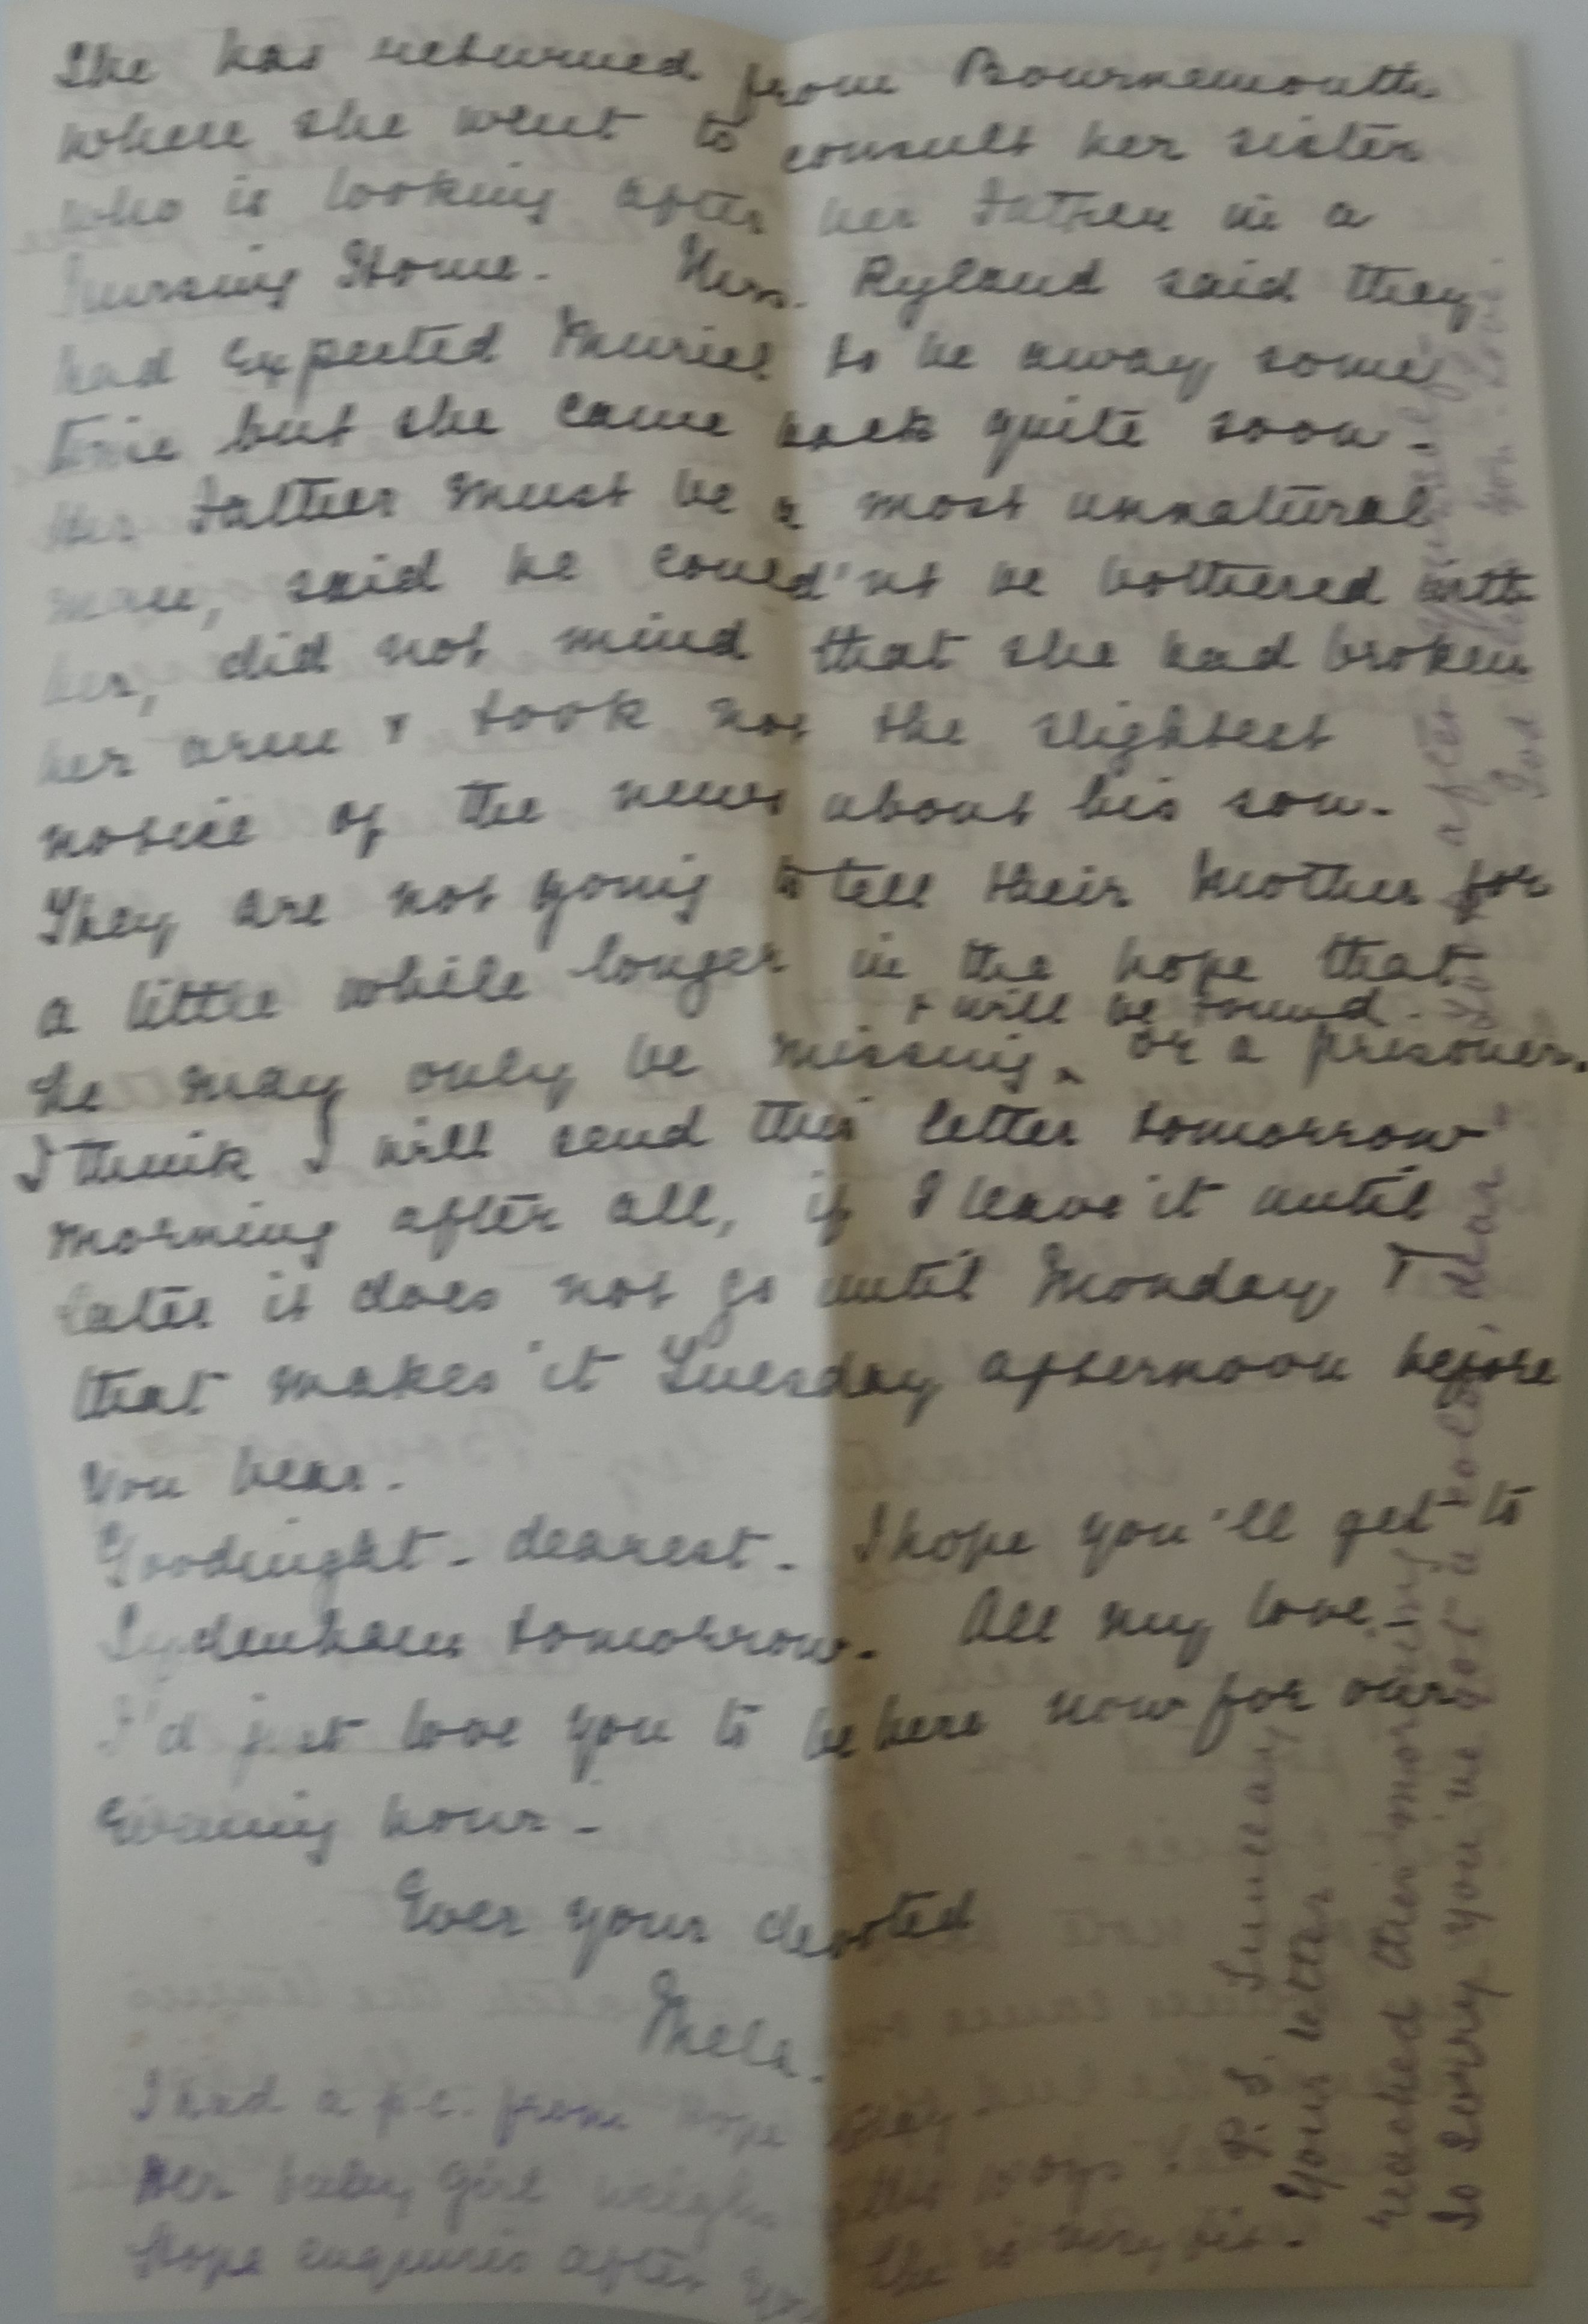 She has returned from Bournemouth
where she went to consult her sister
who is looking after her Father in a
Nursing Home. Mrs. Ryland said they
had expected Muriel to be away some
time but she came back quite soon.
Her Father must be a most unnatural
man, said he could'nt be bothered with
her, did not mind that she had broken
her arm & took not the slightest
notice of the news about his son.
They are not going to tell their Mother for
a little while longer in the hope that
& will be found.
he may only be missing ^ or a prisoner.
I think I will send this letter tomorrow
morning after all, if I leave it until
later it does not go until Monday &
that makes it Tuesday afternoon before
you hear.
Goodnight - dearest - I hope you'll get to
Sydenham tomorrow. All my love -
I'd just love you to be here now for our
Evening hour -
Ever your devoted
Mela.
I had a p.c. from Hope
Her baby girl weighs
Hope enquires after she is very
P.S. Sunday
Your letter
reached this morning
So sorry you've got a cold, dear
after yourself
God